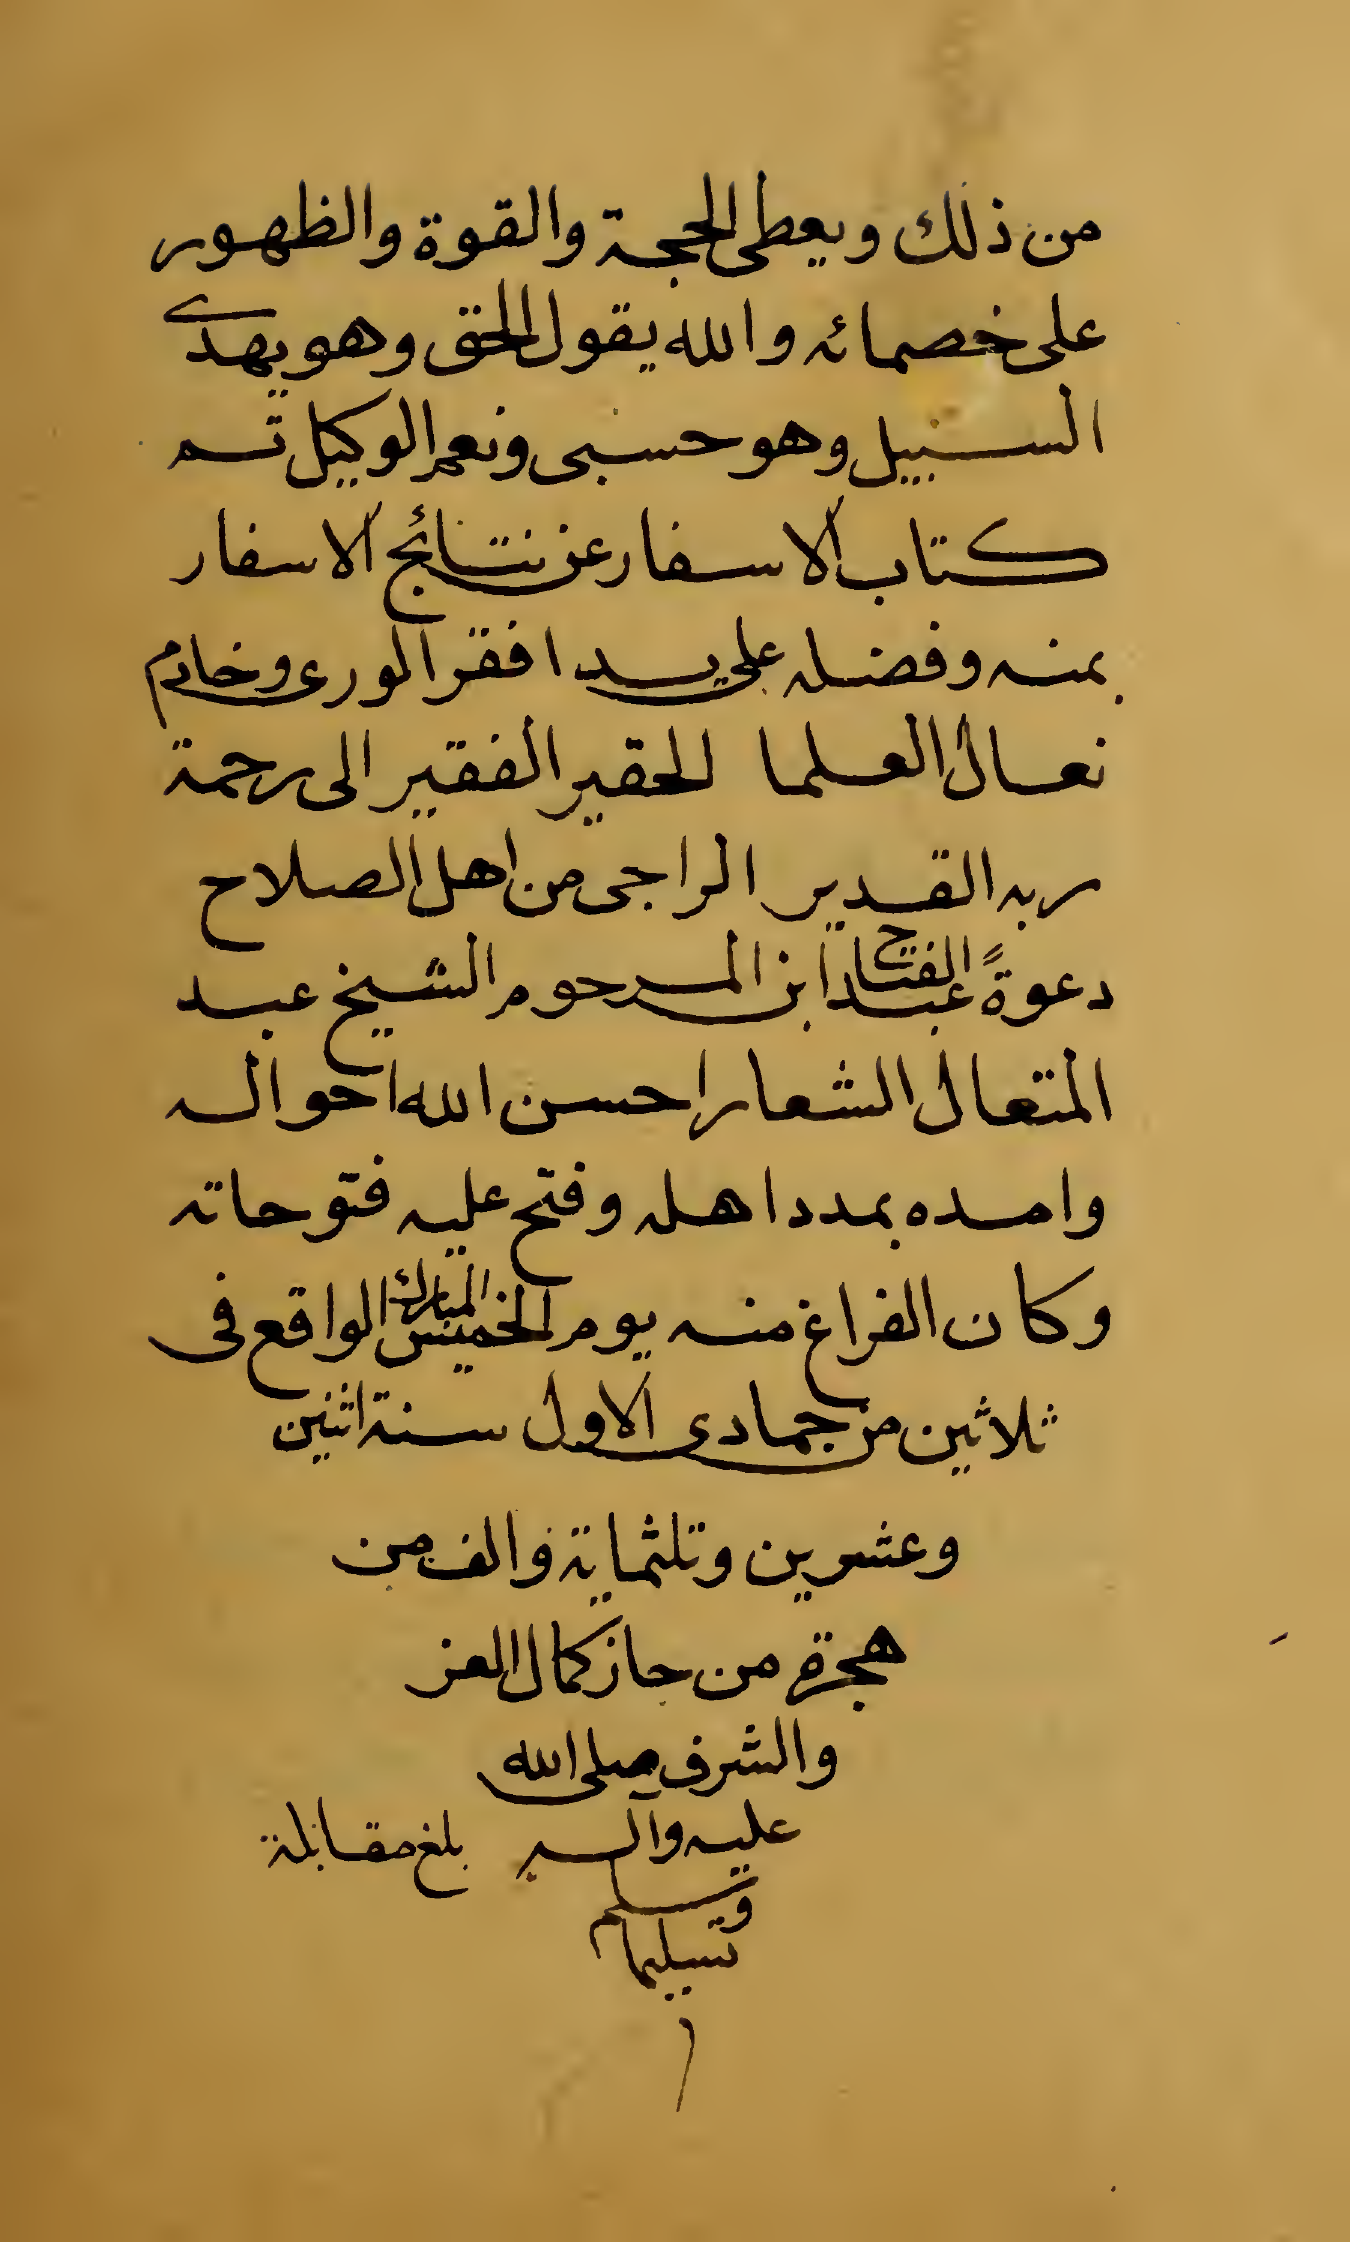 من ذلك ويعطى الحجة والقوة والظهور
على خصمائه والله يقول الحق وهو يهدى
السبيل وهو حسبى ونعم الوكيل تم
كتاب الاسفار عن نتائج الاسفار
بمنه وفضله على يد افقر الورى وخادم
نعال العلما الحقير الفقير الى رحمة
ربه القدير الراجى من اهل الصلاح
دعوةً عبد الفتاح ابن المرحوم الشيخ عبد
المتعال الشعار احسن الله احواله
وامده بمدد اهله وفتح عليه فتوحاته
وكان الفراغ منه يوم الخميس المبارك الواقع فى
ثلاثين من جمادى الاول سنة اثنين
وعشرين وثلثماية والف من
هجرة من حاز كمال العز
والشرف صلى الله
عليه وآله بلغ مقابلة
وسلم
تسليما